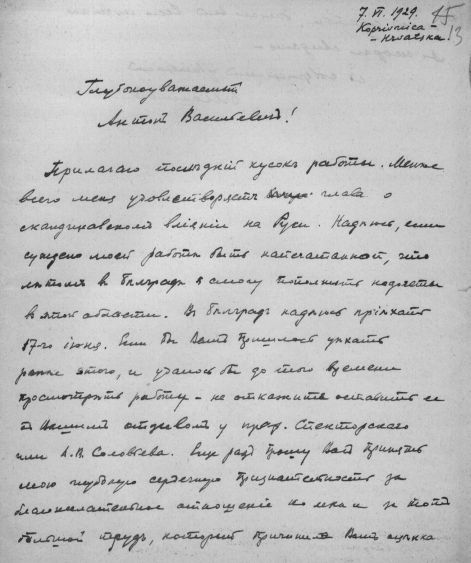 7. VI. 1929.
Koprivnica -
- Hrvatska
15
13
Глубокоуважаемый
Антон Васильевич!
Прилагаю последній кусокъ работы. Менѣе
всего меня удовлетворяетъ глава о
скандинавскомъ вліяніи на Руси. Надѣюсь, если
суждено моей работѣ быть напечатанной, что
лѣтомъ в Бѣлградѣ я смогу пополнить недочеты
в этой области. Въ Бѣлградъ надѣюсь пріѣхать
17-го іюня. Если бы Вамъ пришлось уѣхать
ранѣе этого, и удалось бы до того времени
просмотрѣть работу - не откажите оставить ее
съ Вашимъ отзывомъ у проф. Спекторскаго
или А. В. Соловьева. Еще разъ прошу Васъ принять
мою глубокую сердечную признательность за
благожелательное отношеніе ко мнѣ и за тотъ
большой трудъ, который причинила Вамъ оцѣнка